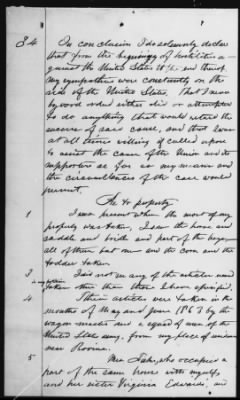 34 In conclusion I do solemnly declare
that from the beginning of hostilities a-
gainst the United States to the end thereof
my sympathies were constantly on the
side of the United States, That I never
by word or deed either did or attempted
to do anything that would retard the
success of said cause, and that I was
at all times willing if called upon
to assist the cause of the Union and its
supporters as far as my means and
the circumstances of the case would
permit.
As to property
1 I was present when the most of my
property was taken, I saw the horse and
saddle and bridle and part of the
all of them but one and the corn and the
fodder taken
3 I did not see any of the articles used
taken other than those I have specified.
4 These articles were taken in the
months of May and June 1863 by the
wagon master and a squad of men of the
United States army, from my place of residence
near Bovina.
5 Mrs. Lake, who occupies a
part of the same house with myself,
and her sister Virginia Edwards, and